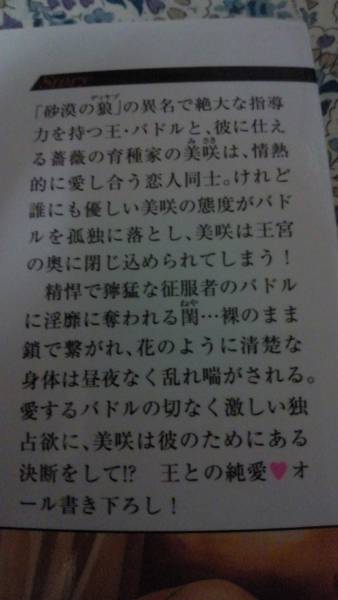 Story
「砂漠の狼」の異名で絶大な指導
力を持つ王・バドルと、彼に仕え
る薔薇の育種家の美咲は、情熱
的に愛し合う恋人同士。けれど
誰にも優しい美咲の態度がバド
ルを孤独に落とし、美咲は王宮
の奥に閉じ込められてしまう！
精悍で獰猛な征服者のバドル
に淫靡に奪われる閨…裸のまま
鎖で繋がれ、花のように清楚な
身体は昼夜なく乱れ喘がされる。
愛するバドルの切なく激しい独
占欲に、美咲は彼のためにある
決断をして!?　王との純愛♥オ
ール書き下ろし！